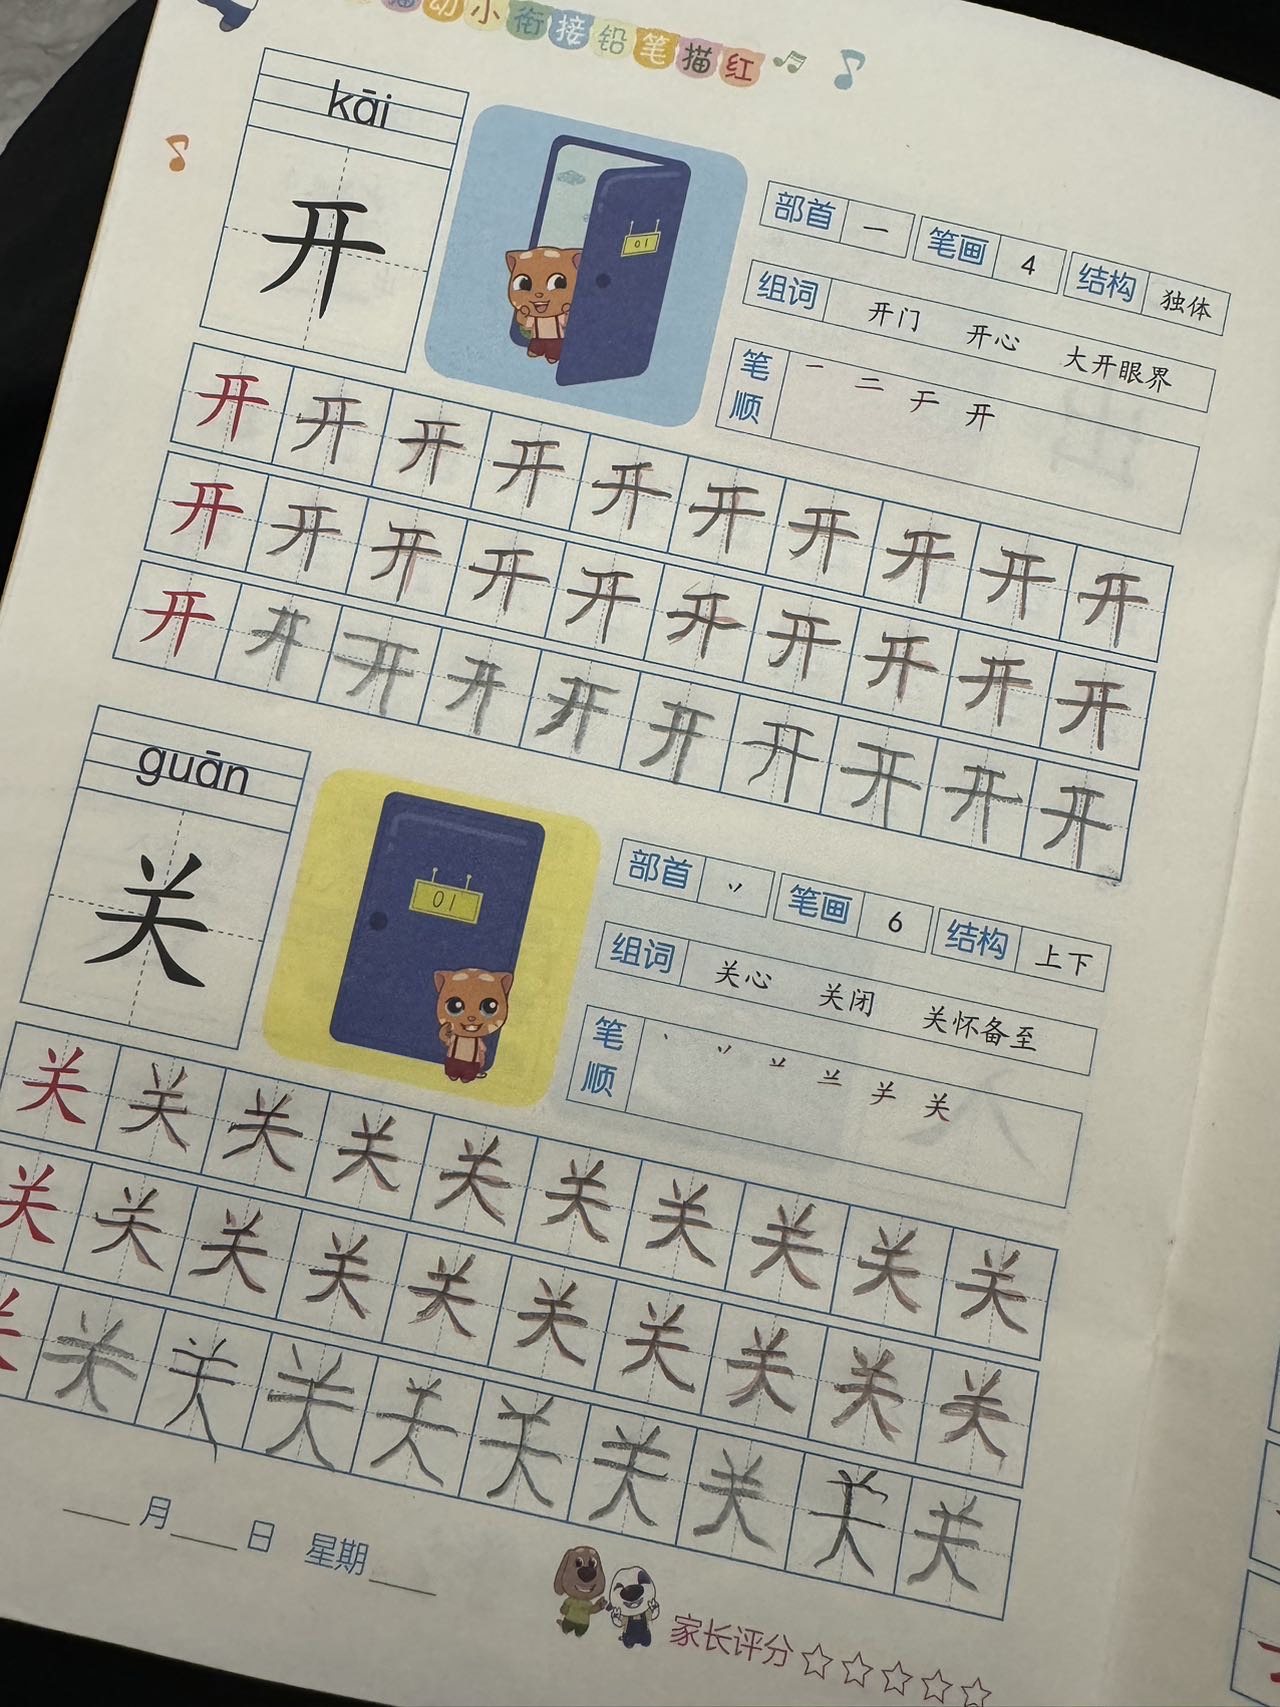 幼小衔接铅笔描红
kāi
开
01
部首 一 笔画 4 结构 独体
组词 开门 开心 大开眼界
笔顺 一 二 于 开
开 开 开 开 开 开 开 开 开 开
开 开 开 开 开 开 开 开 开 开
开 开 开 开 开 开 开 开 开 开
guān
关
01
部首 丷 笔画 6 结构 上下
组词 关心 关闭 关怀备至
笔顺 丶 丷 䒑 关
关 关 关 关 关 关 关 关 关 关
关 关 关 关 关 关 关 关 关 关
关 关 关 关 关 关 关 关 关 关
月 日 星期
家长评分